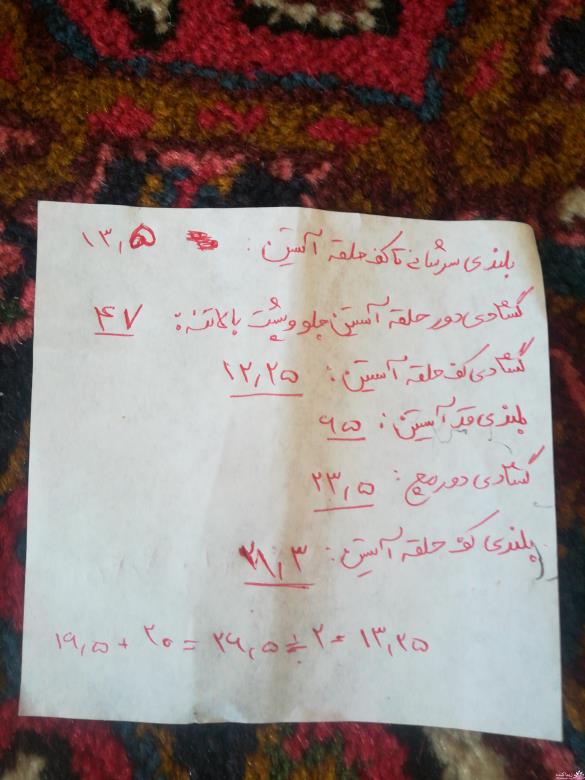 بلندی سرشانه تا کف حلقه آستین: ۱۳,۵
گشادی دور حلقه آستین جلو و پشت بالاتنه: ۴۷
گشادی کف حلقه آستین: ۱۲,۲۵
بلندی قد آستین: ۶۵
گشادی دور مچ: ۲۳,۵
بلندی کف حلقه آستین:
۱۳,۲۵ = ۲ ÷ ۲۶,۵ =